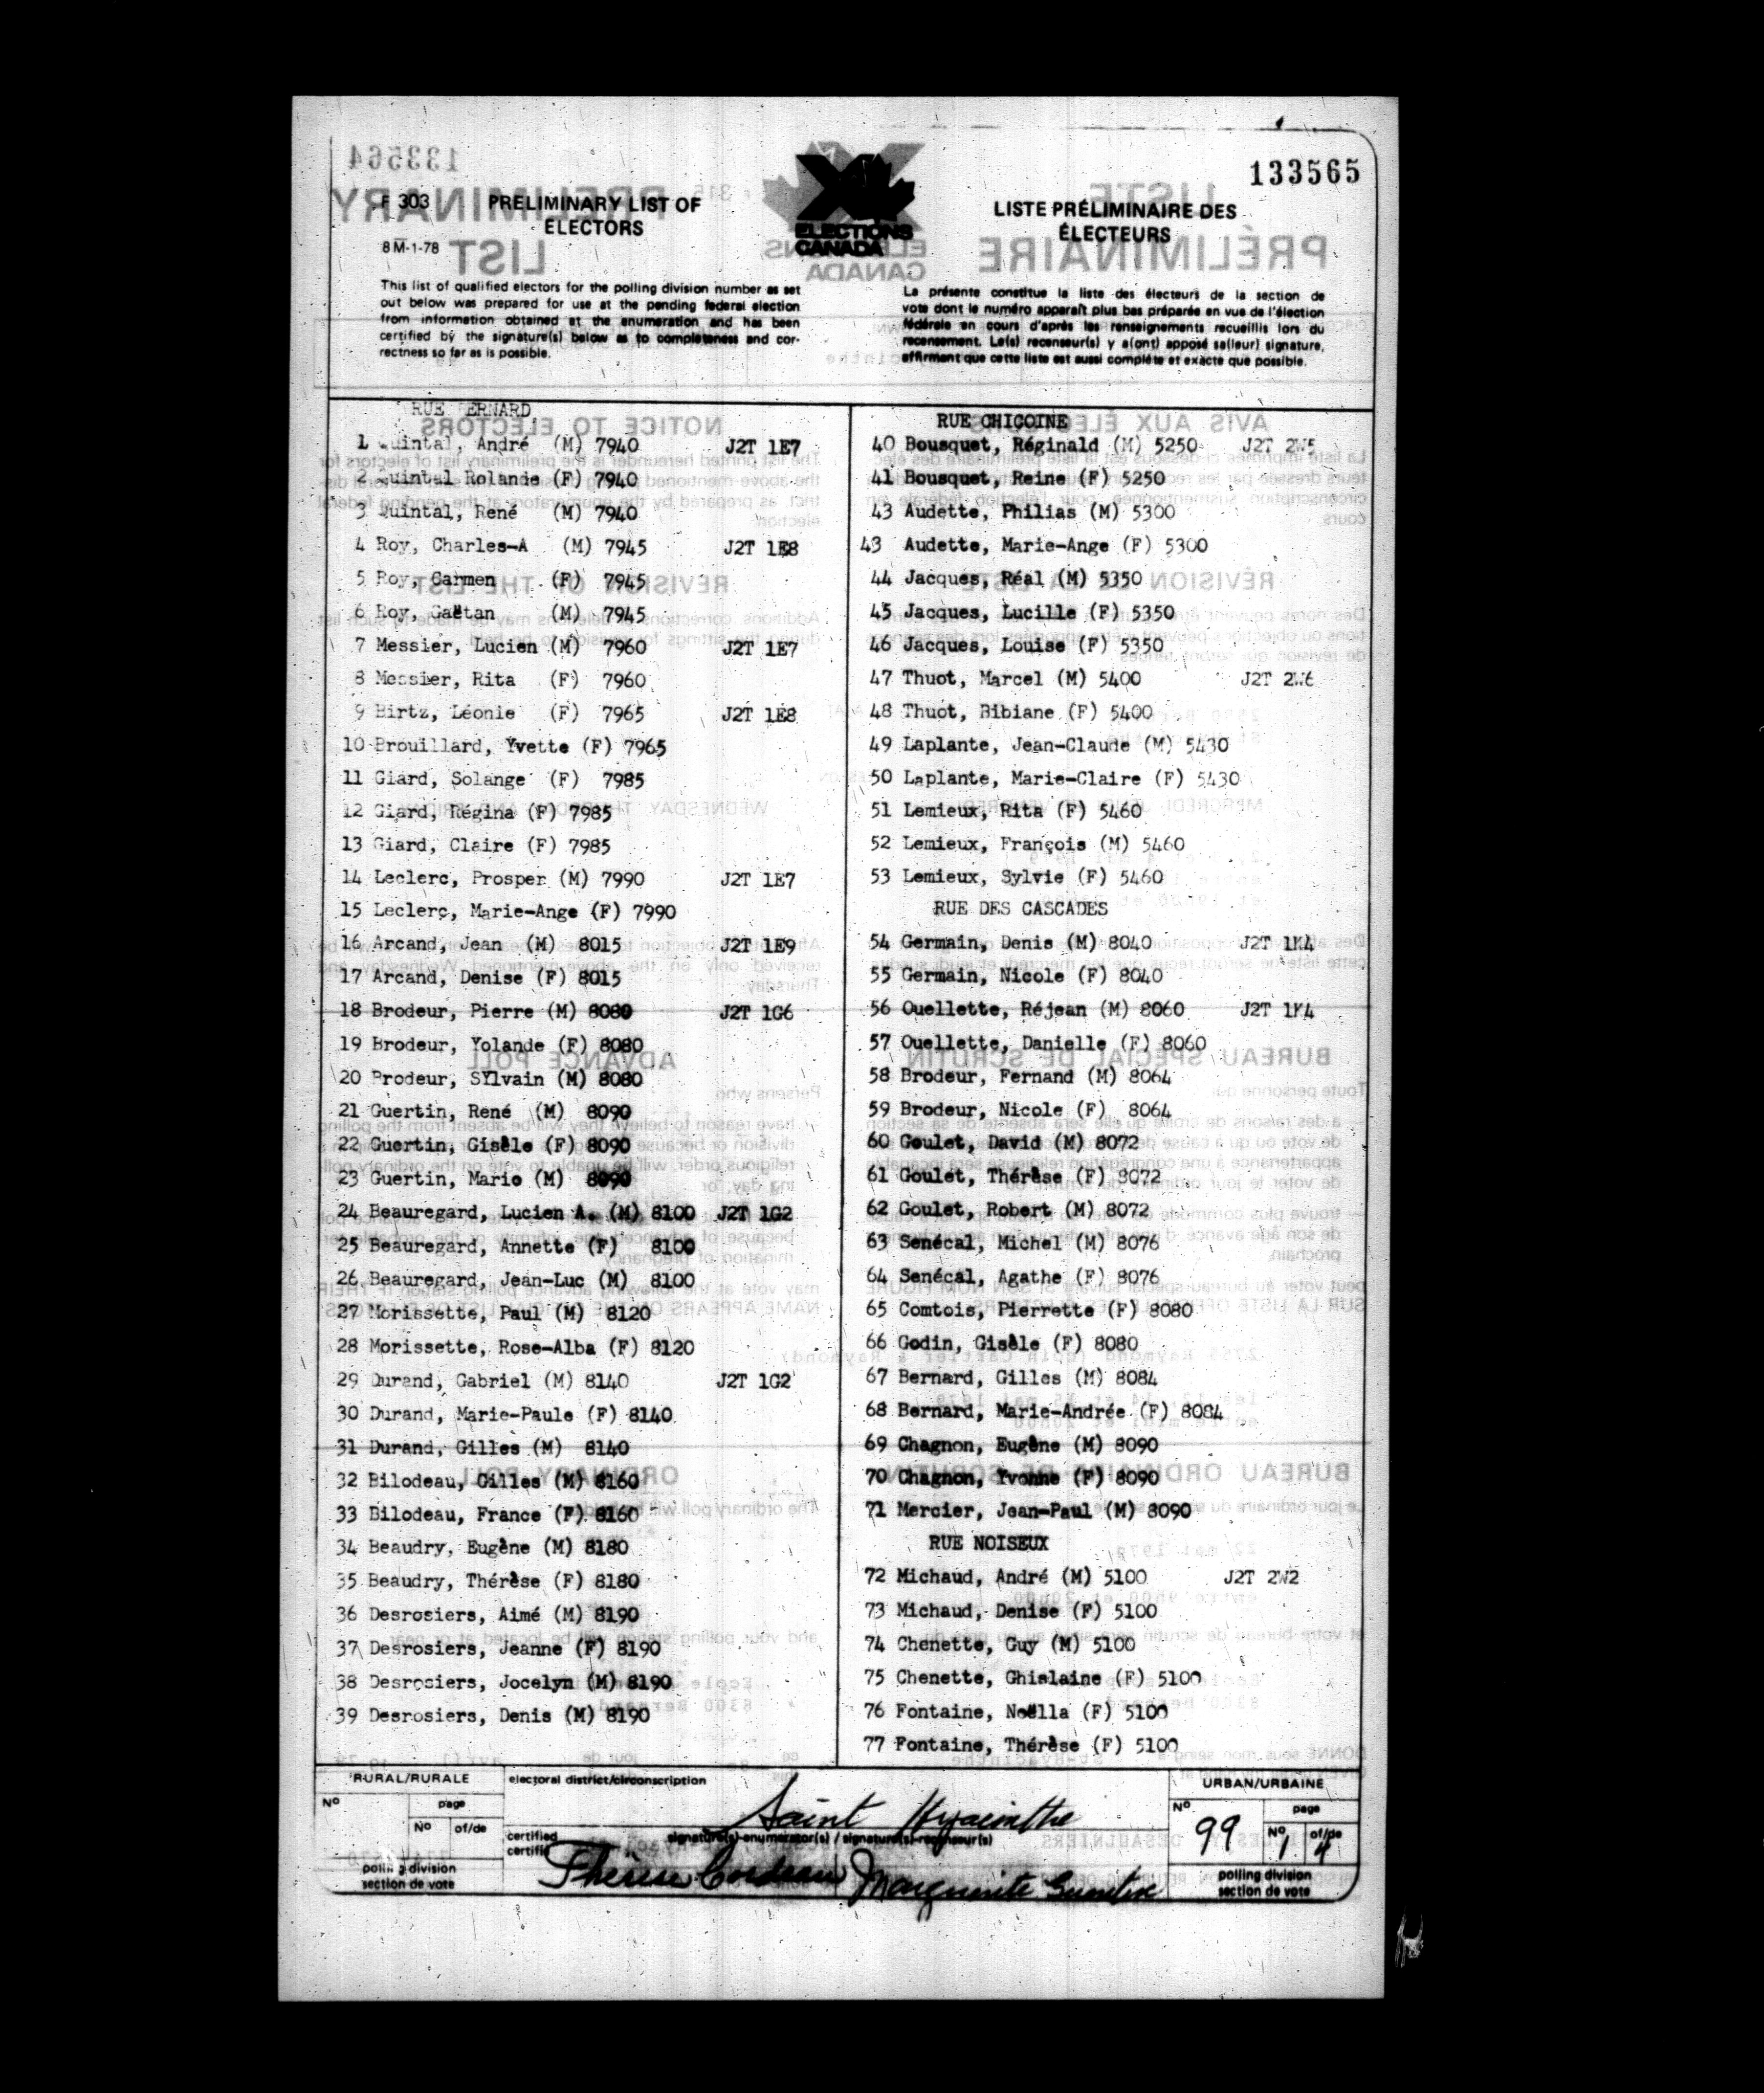 133565
F 303
PRELIMINARY LIST OF
ELECTORS
8 M-1-78
ELECTIONS
CANADA
LISTE PRÉLIMINAIRE DES
ÉLECTEURS
This list of qualified electors for the polling division number as set
out below was prepared for use at the pending federal election
from information obtained at the enumeration and has been
certified by the signature(s) below as to completeness and cor-
rectness so far as is possible.
La présente constitue la liste des électeurs de la section de
vote dont le numéro apparaît plus bas préparée en vue de l'élection
fédérale en cours d'après les renseignements recueillis lors du
recensement. Le(s) recenseur(s) y a(ont) apposé sa(leur) signature,
affirmant que cette liste est aussi complète et exacte que possible.
RUE BERNARD
1 Quintal, André (M) 7940 J2T 1E7
2 Quintal Rolande (F) 7940
3 Quintal, René (M) 7940
4 Roy, Charles-A (M) 7945 J2T 1E8
5 Roy, Carmen (F) 7945
6 Roy, Gaëtan (M) 7945
7 Messier, Lucien (M) 7960 J2T 1E7
8 Messier, Rita (F) 7960
9 Birtz, Léonie (F) 7965 J2T 1E8
10 Brouillard, Yvette (F) 7965
11 Giard, Solange (F) 7985
12 Giard, Régina (F) 7985
13 Giard, Claire (F) 7985
14 Leclerc, Prosper (M) 7990 J2T 1E7
15 Leclerc, Marie-Ange (F) 7990
16 Arcand, Jean (M) 8015 J2T 1E9
17 Arcand, Denise (F) 8015
18 Brodeur, Pierre (M) 8080 J2T 1G6
19 Brodeur, Yolande (F) 8080
20 Brodeur, SYlvain (M) 8080
21 Guertin, René (M) 8090
22 Guertin, Gisèle (F) 8090
23 Guertin, Mario (M) 8090
24 Beauregard, Lucien A. (M) 8100 J2T 1G2
25 Beauregard, Annette (F) 8100
26 Beauregard, Jean-Luc (M) 8100
27 Morissette, Paul (M) 8120
28 Morissette, Rose-Alba (F) 8120
29 Durand, Gabriel (M) 8140 J2T 1G2
30 Durand, Marie-Paule (F) 8140
31 Durand, Gilles (M) 8140
32 Bilodeau, Gilles (M) 8160
33 Bilodeau, France (F) 8160
34 Beaudry, Eugène (M) 8180
35 Beaudry, Thérèse (F) 8180
36 Desrosiers, Aimé (M) 8190
37 Desrosiers, Jeanne (F) 8190
38 Desrosiers, Jocelyn (M) 8190
39 Desrosiers, Denis (M) 8190
RUE CHICOINE
40 Bousquet, Réginald (M) 5250 J2T 2W5
41 Bousquet, Reine (F) 5250
43 Audette, Philias (M) 5300
43 Audette, Marie-Ange (F) 5300
44 Jacques, Réal (M) 5350
45 Jacques, Lucille (F) 5350
46 Jacques, Louise (F) 5350
47 Thuot, Marcel (M) 5400 J2T 2W6
48 Thuot, Bibiane (F) 5400
49 Laplante, Jean-Claude (M) 5430
50 Laplante, Marie-Claire (F) 5430
51 Lemieux, Rita (F) 5460
52 Lemieux, François (M) 5460
53 Lemieux, Sylvie (F) 5460
RUE DES CASCADES
54 Germain, Denis (M) 8040 J2T 1K4
55 Germain, Nicole (F) 8040
56 Ouellette, Réjean (M) 8060 J2T 1K4
57 Ouellette, Danielle (F) 8060
58 Brodeur, Fernand (M) 8064
59 Brodeur, Nicole (F) 8064
60 Goulet, David (M) 8072
61 Goulet, Thérèse (F) 8072
62 Goulet, Robert (M) 8072
63 Senécal, Michel (M) 8076
64 Senécal, Agathe (F) 8076
65 Comtois, Pierrette (F) 8080
66 Godin, Gisèle (F) 8080
67 Bernard, Gilles (M) 8084
68 Bernard, Marie-Andrée (F) 8084
69 Chagnon, Eugène (M) 8090
70 Chagnon, Yvonne (F) 8090
71 Mercier, Jean-Paul (M) 8090
RUE NOISEUX
72 Michaud, André (M) 5100 J2T 2W2
73 Michaud, Denise (F) 5100
74 Chenette, Guy (M) 5100
75 Chenette, Ghislaine (F) 5100
76 Fontaine, Noëlla (F) 5100
77 Fontaine, Thérèse (F) 5100
RURAL/RURALE
Nº
page
Nº of/de
polling division
section de vote
electoral district/circonscription
Saint Hyacinthe
certified
certifié
signature(s)-enumerator(s) / signature(s)-recenseur(s)
Thérèse Marguerite
URBAN/URBAINE
Nº 99
page
Nº 1 of/de 4
polling division
section de vote